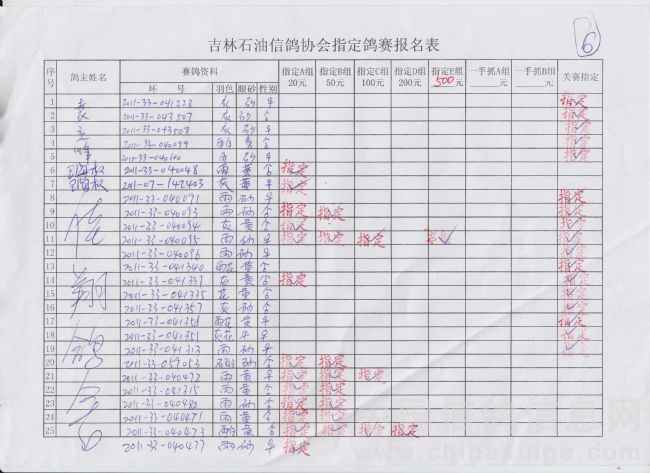 6
吉林石油信鸽协会指定鸽赛报名表
序号 鸽主姓名 赛鸽资料 指定A组 20元 指定B组 50元 指定C组 100元 指定D组 200元 指定E组 500元 一手抓A组 元 一手抓B组 元 关赛指定
环 号 羽色 眼砂 性别
1 2011-33-041228 灰 砂 指定
2 2011-33-043507 灰 砂 指定
3 2011-33-043508 灰 砂 指定
4 2011-33-040099 黄 指定
5 2011-33-040100 雨 砂 指定
6 2011-33-040048 雨 黄 指定
7 2011-07-142403 灰 黄 指定
8 2011-33-040091 雨 砂 指定
9 2011-33-040093 雨 砂 指定 指定 指定
10 2011-33-040094 灰 黄 指定 指定
11 2011-33-040095 雨 黄 指定 指定 指定 指定
12 2011-33-040096 雨 砂 指定
13 2011-33-041340 黄 指定
14 2011-33-041339 灰 黄 指定 指定
15 2011-33-041335 黄 指定
16 2011-33-041357 灰 黄 指定
17 2011-33-041358 黄 指定
18 2011-33-041351 指定
19 2011-33-041313 雨 砂 指定
20 2011-33-059053 砂 指定 指定
21 2011-33-040472 雨 黄 指定 指定 指定
22 2011-33-081315 雨 黄 指定 指定
23 2011-33-040480 雨 砂 指定 指定
24 2011-33-040471 雨 黄 指定 指定
25 2011-33-040473 黄 指定 指定 指定 指定
2011-33-040477 雨 砂 指定
www.chinaxinge.com